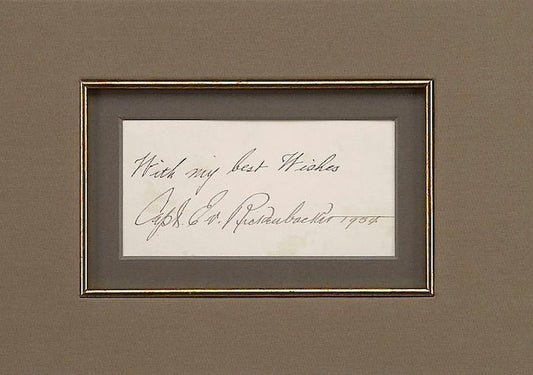 With my best Wishes
Capt. E.V. Rickenbacker 1934